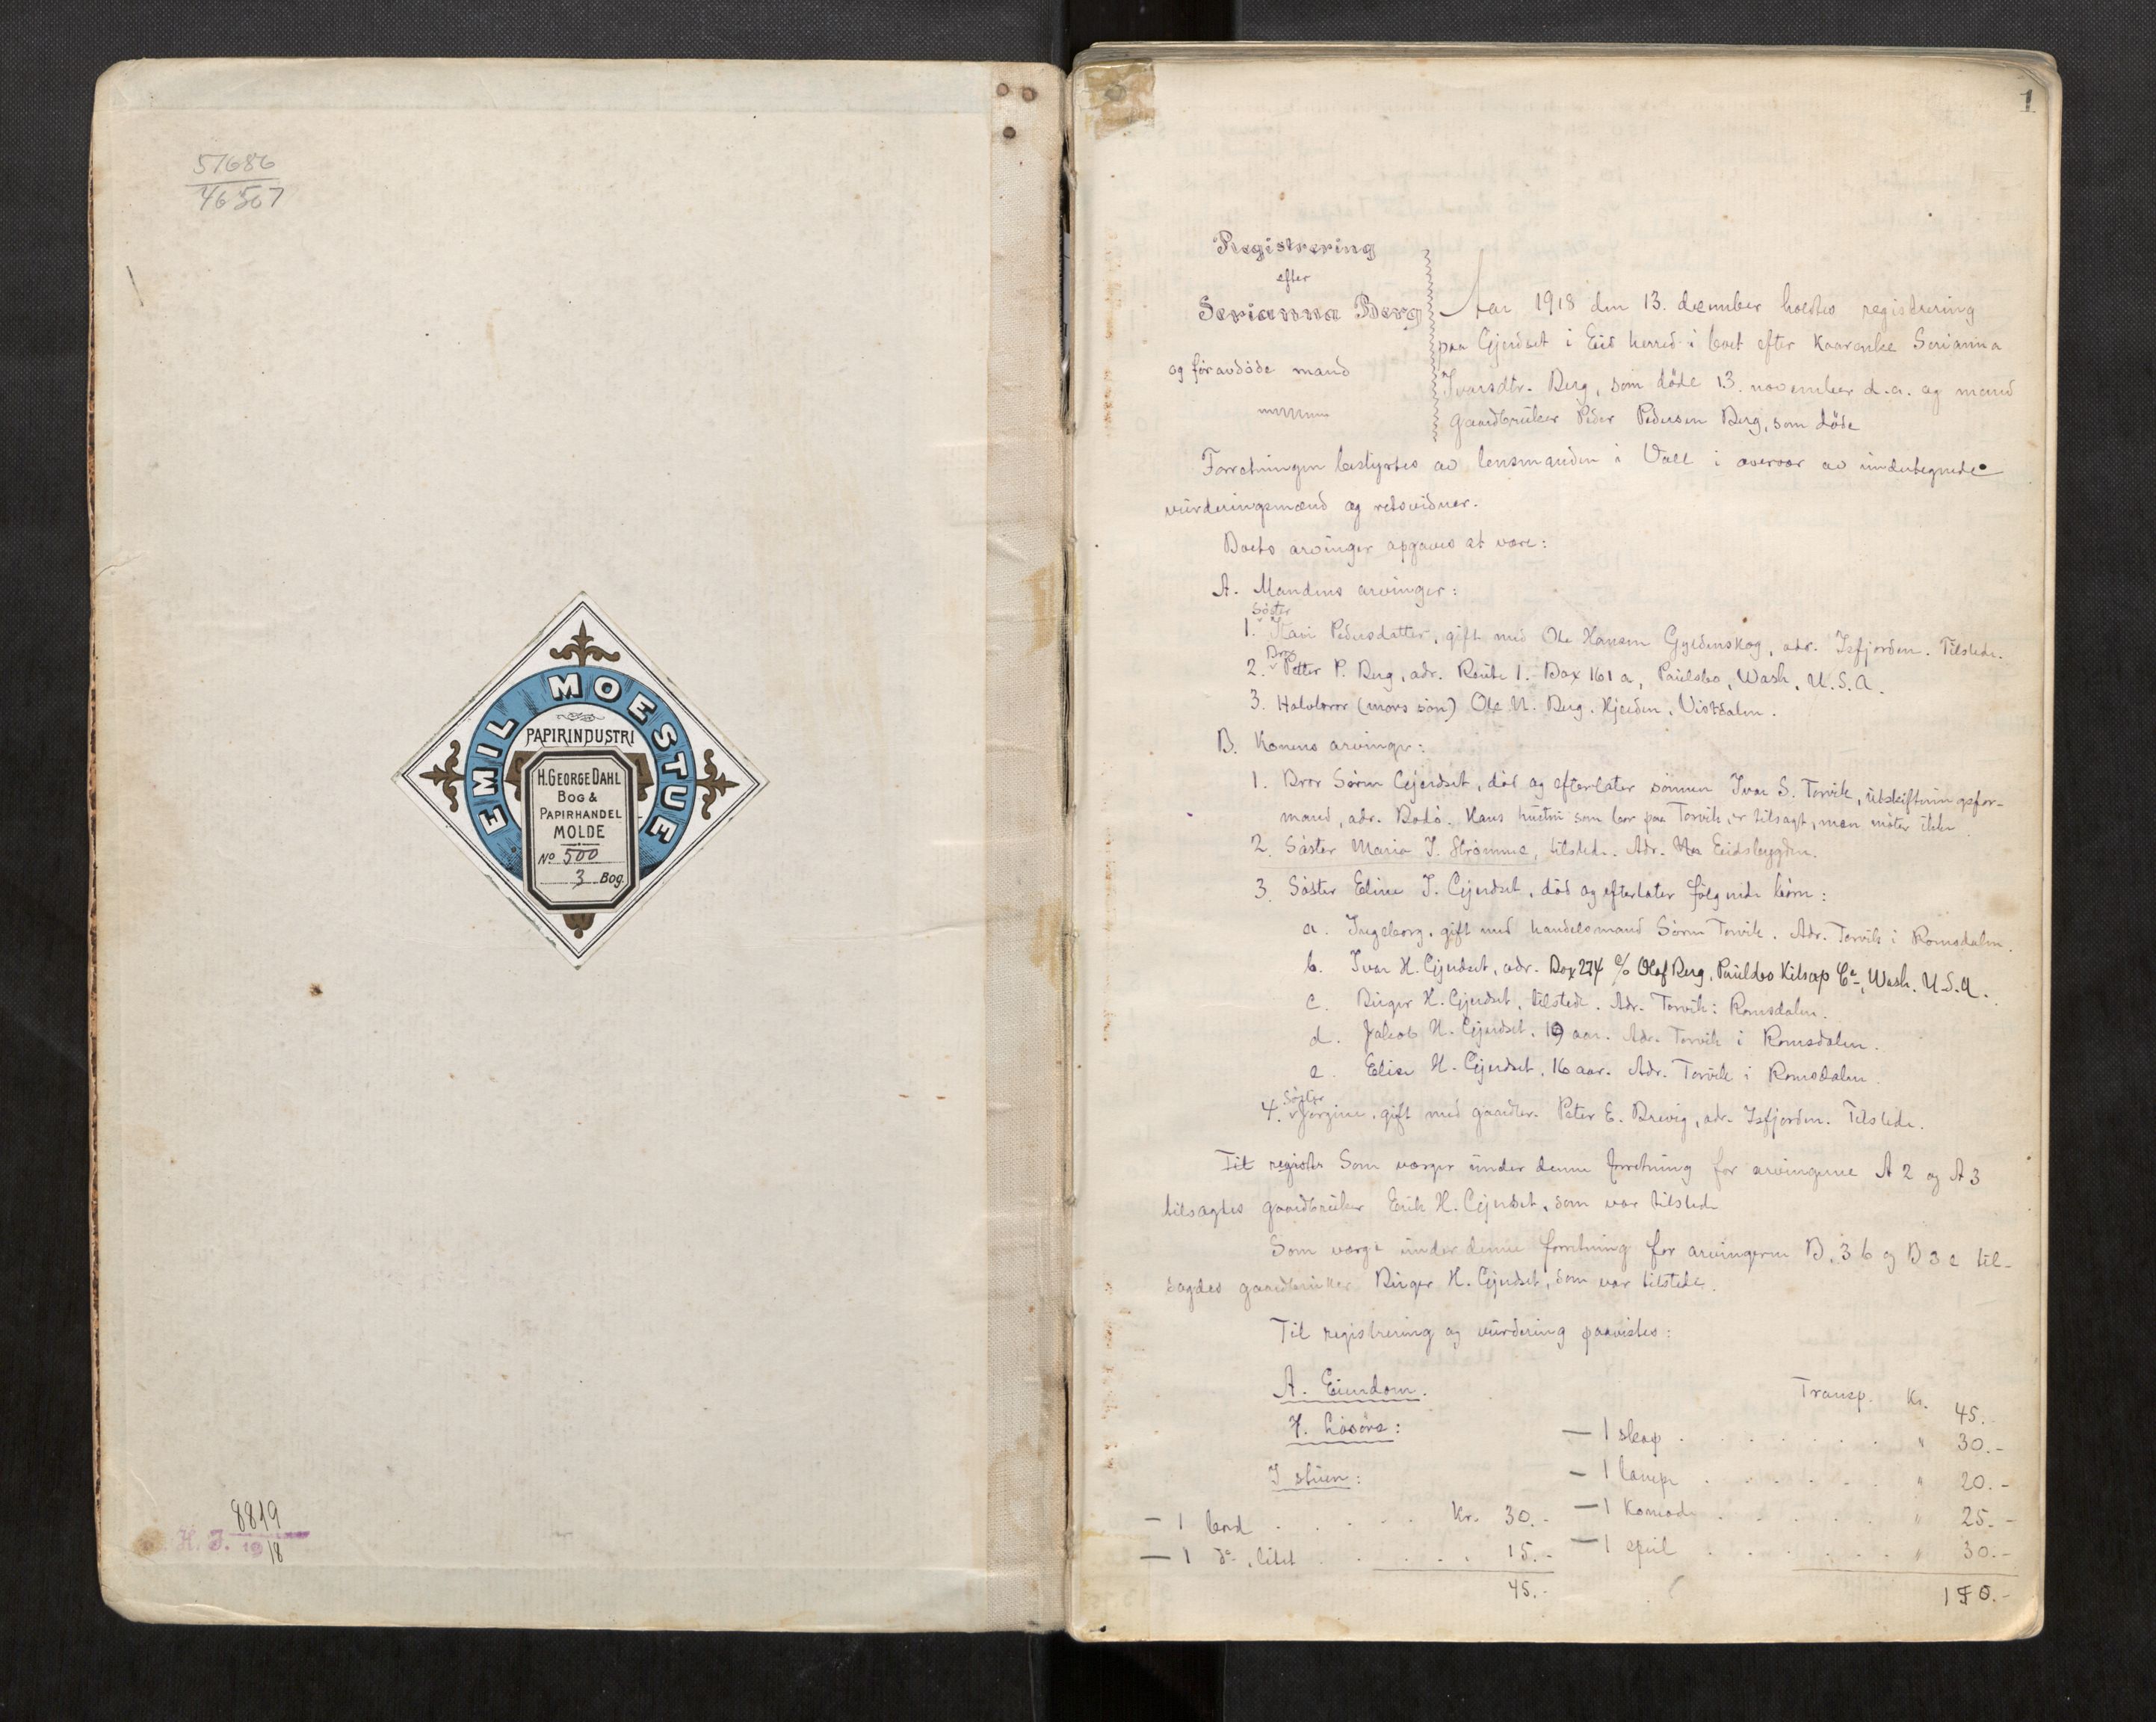 57686
46507
EMIL MOESTUE
PAPIRINDUSTRI
H. GEORGE DAHL
BOG &
PAPIRHANDEL
MOLDE
No 500
3 Bog.
8819
H. J. 19 18
1
Registrering
efter
Serianna Berg
og foravdøde mand
Aar 1918 den 13. december holdtes registrering
paa Gjerdset i Eid herred i boet efter kaarenke Serianna
Ivarsdtr. Berg, som døde 13. november d.a. og mand
gaardbruker Peder Pedersen Berg, som døde
Forretningen bestyrtes av lensmanden i Voll i overvær av undertegnede
vurderingsmænd og retsvidner.
Boets arvinger opgaves at være:
A. Mandens arvinger:
Søster
1. Kari Pedersdatter, gift med Ole Hansen Gyldenskog, adr. Isfjorden. Tilstede.
Bror
2. Petter P. Berg, adr. Route 1. Box 161 a, Paulsbo, Wash, U.S.A.
3. Halvbror (mors søn) Ole N. Berg. Hjerden, Vistdalen.
B. Konens arvinger:
1. Bror Søren Gjerdset, død og efterlater sønnen Ivar S. Torvik, utskiftningsfor-
mand, adr. Bodø. Hans hustru som bor paa Torvik, er tilsagt, men møter ikke
2. Søster Maria I. Strømme, tilstede. Adr. Eidsbygden.
3. Søster Eline I. Gjerdset, død og efterlater følgende børn:
a. Ingeborg, gift med handelsmand Søren Torvik. Adr. Torvik i Romsdalen.
b. Ivar H. Gjerdset, adr. Box 274 c/o Olaf Berg, Paulsbo Kitsap Co, Wash. U.S.A.
c. Birger H. Gjerdset, tilstede. Adr. Torvik i Romsdalen.
d. Jakob H. Gjerdset, 19 aar. Adr. Torvik i Romsdalen.
e. Elise H. Gjerdset, 16 aar. Adr. Torvik i Romsdalen.
Søster
4. Jørgine, gift med gaardbr. Peter E. Brevig, adr. Isfjorden. Tilstede.
Til registr Som værger under denne forretning for arvingerne A 2 og A 3
tilsagdes gaardbruker Erik H. Gjerdset, som var tilstede
Som værge under denne forretning for arvingerne B. 3 b og B 3 e til-
sagdes gaardbruker Birger H. Gjerdset, som var tilstede.
Til registrering og vurdering paavistes:
A. Eiendom.
Løsøre:
I stuen:
— 1 bord . . . . . Kr. 30.-
— 1 do, litet . . . . . 15.-
45.-
Transp. Kr. 45.
— 1 skap . . . . . " 30.-
— 1 lampe . . . . . " 20.-
— 1 Komode . . . . . " 25.-
— 1 speil . . . . . " 30.-
150.-